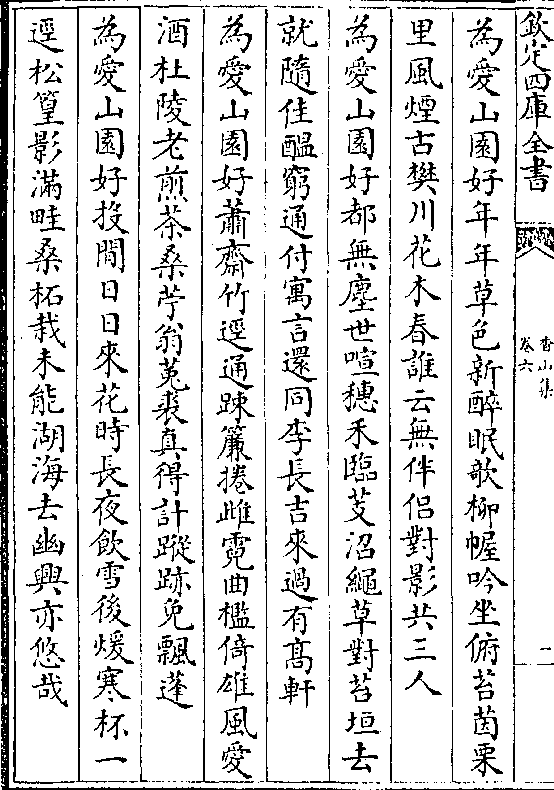 欽定四庫全書
香山集
卷六
二
為愛山園好年年草色新醉眠歌柳幄吟坐俯苔茵栗
里風煙古樊川花木春誰云無伴侣對影共三人
為愛山園好都無塵世喧穗禾臨芰沼繩草對苔垣去
就隨佳醖窮通付寓言還同李長吉來過有高軒
為愛山園好蕭齋竹逕通踈簾捲雌霓曲檻倚雄風愛
酒杜陵老煎茶桑苧翁菟裘真得計蹤跡免飄蓬
為愛山園好投閒日日來花時長夜飲雪後煖寒杯一
逕松篁影滿畦桑柘栽未能湖海去幽興亦悠哉